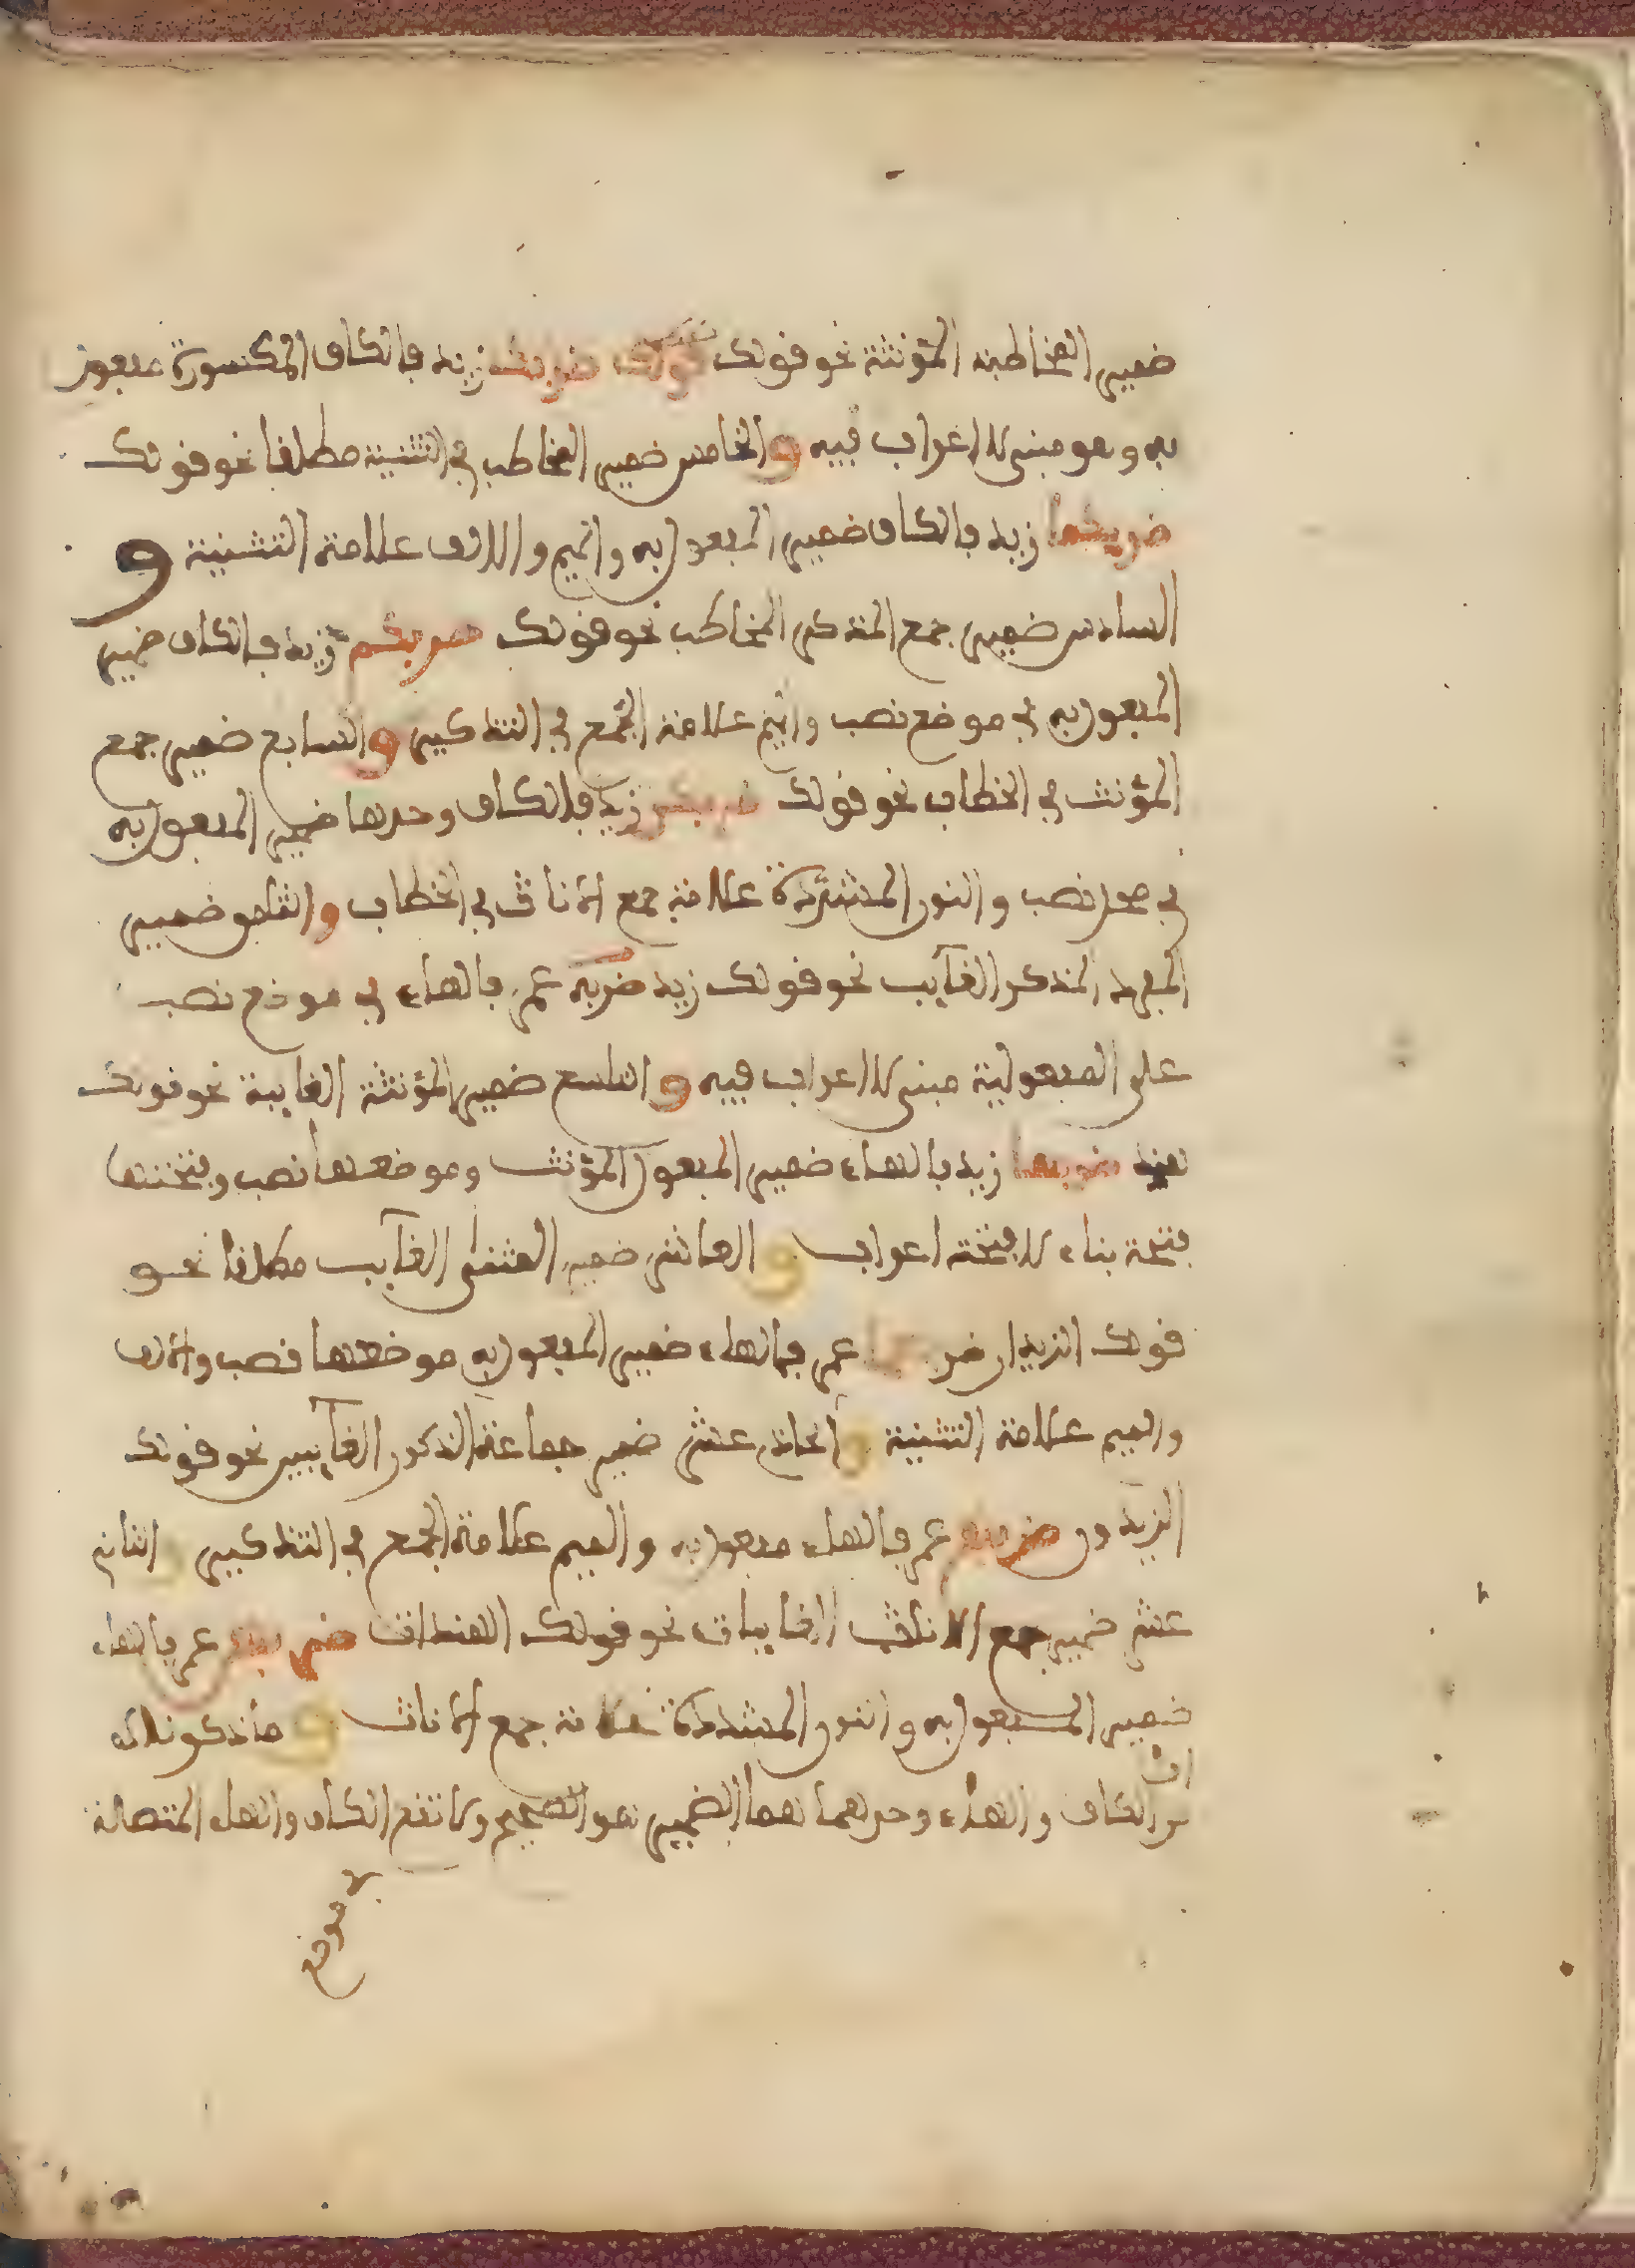 ضمير المخاطبة المؤنثة نحو قولك ضربك زيد فالكاف المكسورة مفعول
به وهو مبني لا اعراب فيه والخامس ضمير المخاطب في التثنية مطلقا نحو قولك
ضربكما زيد فالكاف ضمير المفعول به والميم والالف علامة التثنية و
السادس ضمير جمع المذكر المخاطب نحو قولك ضربكم زيد فالكاف ضمير
المفعول به في موضع نصب والميم علامة الجمع في التذكير والسابع ضمير جمع
المؤنث في الخطاب نحو قولك ضربكن زيد فالكاف وحدها ضمير المفعول به
في محل نصب والنون المشددة علامة جمع الاناث في الخطاب والثامن ضمير
المفرد المذكر الغايب نحو قولك زيد ضربه عمر فالهاء في موضع نصب
على المفعولية مبني لا اعراب فيه والتاسع ضمير المؤنثة الغايبة نحو قولك
هند ضربها زيد فالهاء ضمير المفعول المؤنث وموضعها نصب وفتحتها
فتحة بناء لا فتحة اعراب والعاشر ضمير المثنى الغايب مطلقا نحو
قولك الزيدان ضربهما عمر فالهاء ضمير المفعول به موضعها نصب والالف
والميم علامة التثنية والحادي عشر ضمير جماعة الذكور الغايبين نحو قولك
الزيدون ضربهم عمر فالهاء مفعول به والميم علامة الجمع في التذكير والثاني
عشر ضمير جمع الاناث الغايبات نحو قولك الهندات ضربهن عمر فالهاء
ضمير المفعول به والنون المشددة علامة جمع الاناث وما ذكرناه
من ان الكاف والهاء وحدهما هما الضمير هو الصحيح ولا تقع الكاف والهاء المتصلة
في موضع